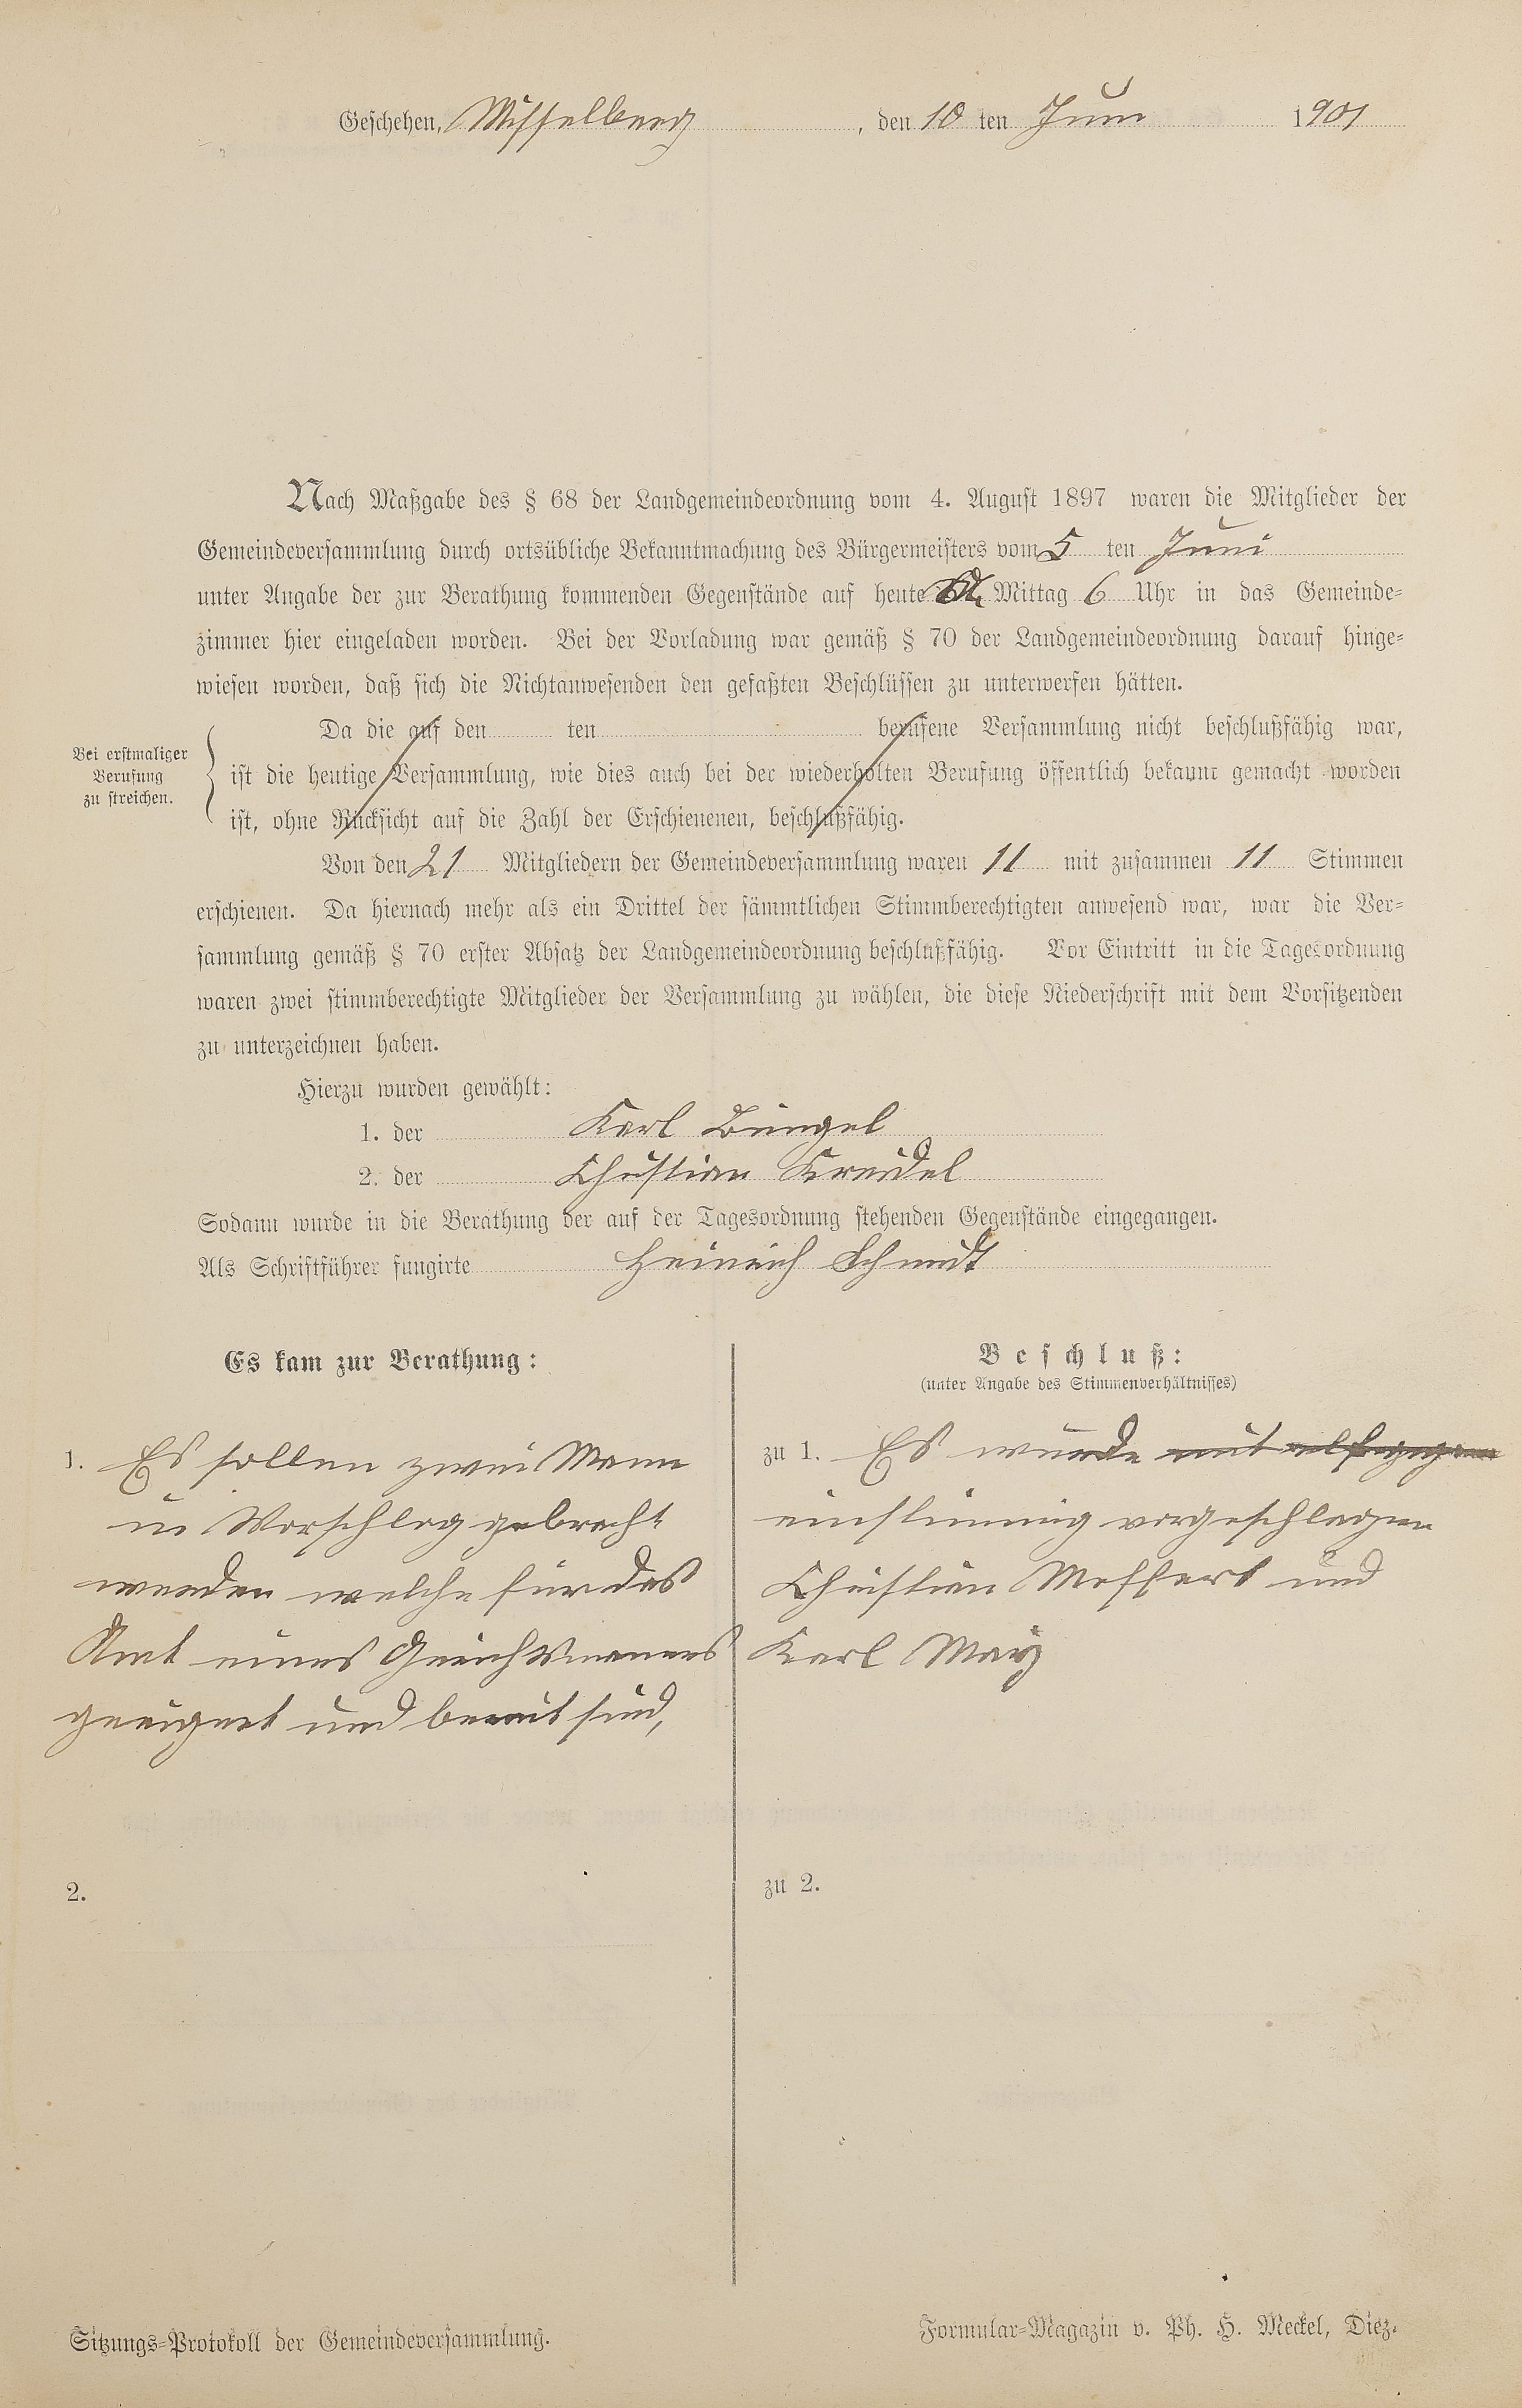 Geschehen, Misselberg, den 10 ten Juni 1901
Nach Maßgabe des § 68 der Landgemeindeordnung vom 4. August 1897 waren die Mitglieder der
Gemeindeversammlung durch ortsübliche Bekanntmachung des Bürgermeisters vom 5 ten Juni
unter Angabe der zur Berathung kommenden Gegenstände auf heute Mittag 6 Uhr in das Gemeinde=
zimmer hier eingeladen worden. Bei der Vorladung war gemäß § 70 der Landgemeindeordnung darauf hinge=
wiesen worden, daß sich die Nichtanwesenden den gefaßten Beschlüssen zu unterwerfen hätten.
Bei erstmaliger
Berufung
zu streichen.
Da die auf den ten berufene Versammlung nicht beschlußfähig war,
ist die heutige Versammlung, wie dies auch bei der wiederholten Berufung öffentlich bekannt gemacht worden
ist, ohne Rücksicht auf die Zahl der Erschienenen, beschlußfähig.
Von den 21 Mitgliedern der Gemeindeversammlung waren 11 mit zusammen 11 Stimmen
erschienen. Da hiernach mehr als ein Drittel der sämmtlichen Stimmberechtigten anwesend war, war die Ver=
sammlung gemäß § 70 erster Absatz der Landgemeindeordnung beschlußfähig. Vor Eintritt in die Tagesordnung
waren zwei stimmberechtigte Mitglieder der Versammlung zu wählen, die diese Niederschrift mit dem Vorsitzenden
zu unterzeichnen haben.
Hierzu wurden gewählt:
1. der Karl Büngel
2. der Christian Kreidel
Sodann wurde in die Berathung der auf der Tagesordnung stehenden Gegenstände eingegangen.
Als Schriftführer fungirte Heinrich Schmidt
Es kam zur Berathung:
1. Es sollen zwei Mann
in Vorschlag gebracht
werden welche für das
Amt eines Gerichtsmannes
geeignet und bereit sind,
2.
Beschluß:
(unter Angabe des Stimmenverhältnisses)
zu 1. Es wurde mit
einstimmig vorgeschlagen
Christian Meffert und
Karl May
zu 2.
Sitzungs=Protokoll der Gemeindeversammlung.
Formular=Magazin v. Ph. H. Meckel, Diez.